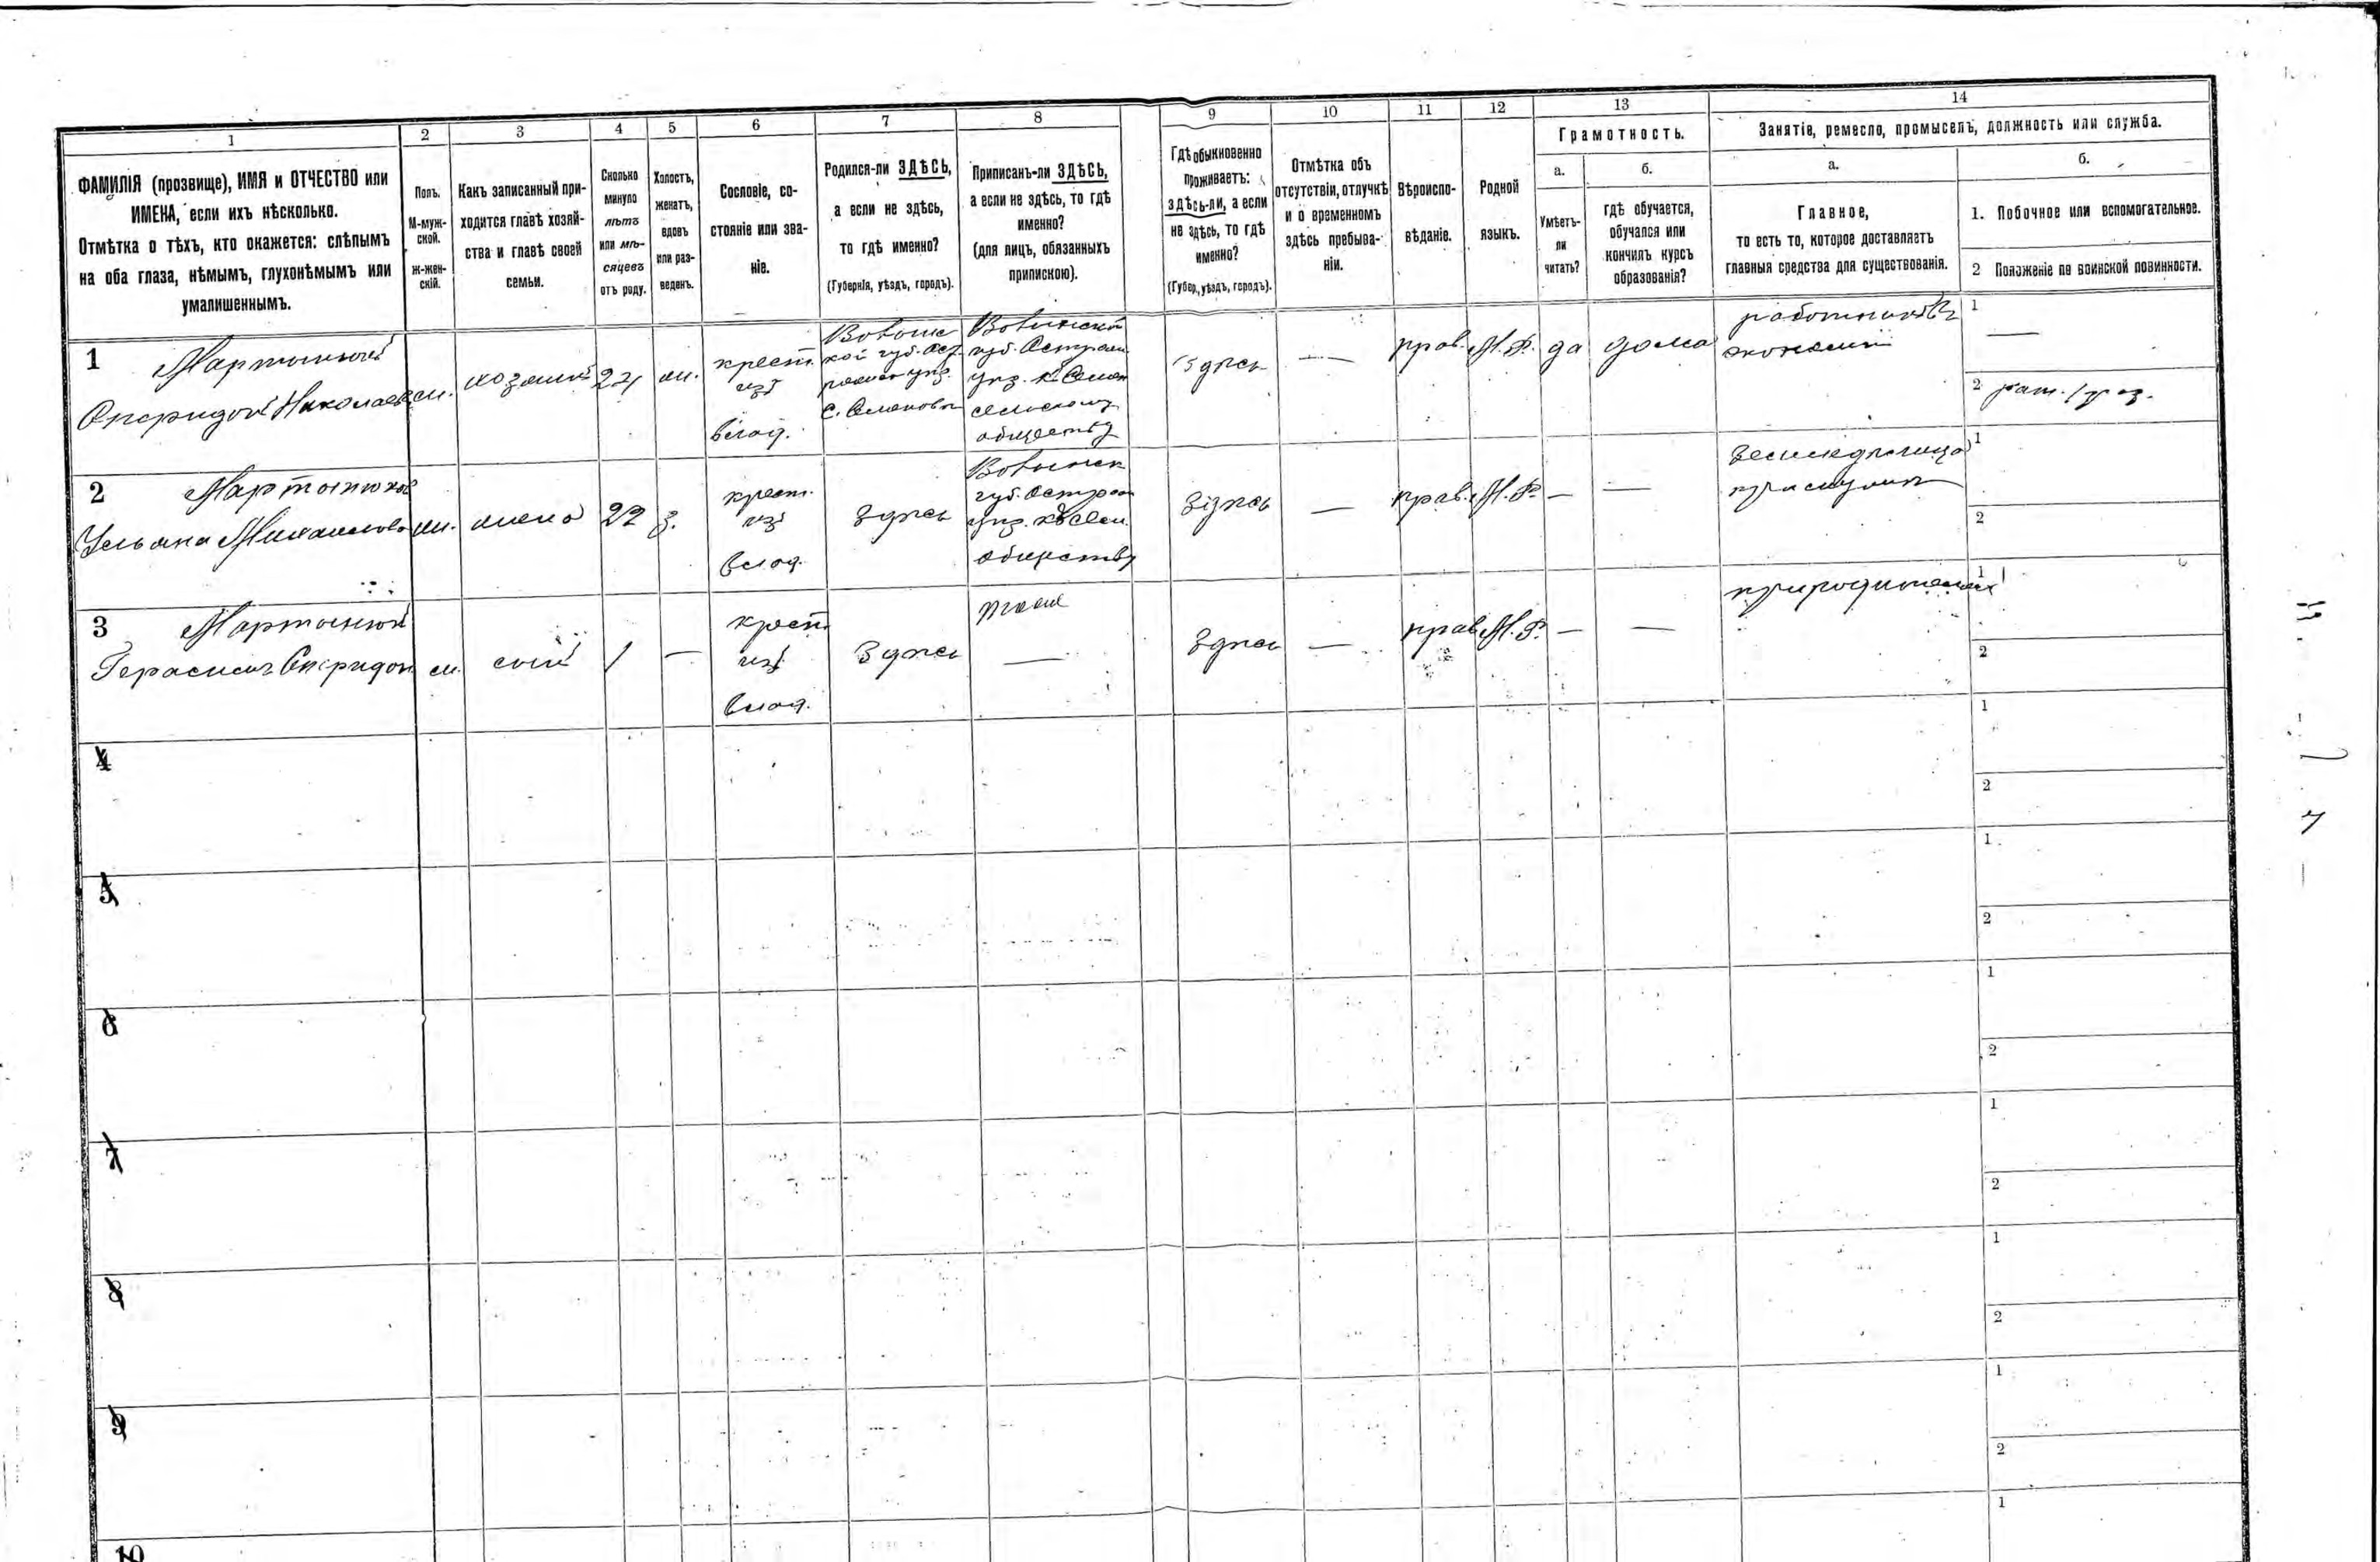 1
2
3
4
5
6
7
8
9
10
11
12
13
14
ФАМИЛІЯ (прозвище), ИМЯ и ОТЧЕСТВО или
ИМЕНА, если ихъ нѣсколько.
Отмѣтка о тѣхъ, кто окажется: слѣпымъ
на оба глаза, нѣмымъ, глухонѣмымъ или
умалишеннымъ.
Полъ.
М-муж-
ской.
ж-жен-
скій.
Какъ записанный при-
ходится главѣ хозяй-
ства и главѣ своей
семьи.
Сколько
минуло
лѣтъ
или мѣ-
сяцевъ
отъ роду.
Холостъ,
женатъ,
вдовъ
или раз-
веденъ.
Сословіе, со-
стояніе или зва-
ніе.
Родился-ли ЗДѢСЬ,
а если не здѣсь,
то гдѣ именно?
(Губернія, уѣздъ, городъ).
Приписанъ-ли ЗДѢСЬ,
а если не здѣсь, то гдѣ
именно?
(для лицъ, обязанныхъ
припискою).
Гдѣ обыкновенно
проживаетъ:
здѣсь-ли, а если
не здѣсь, то гдѣ
именно?
(Губер., уѣздъ, городъ).
Отмѣтка объ
отсутствіи, отлучкѣ
и о временномъ
здѣсь пребыва-
ніи.
Вѣроиспо-
вѣданіе.
Родной
языкъ.
Грамотность.
а.
Умѣетъ-
ли
читать?
б.
гдѣ обучается,
обучался или
кончилъ курсъ
образованія?
Занятіе, ремесло, промыселъ, должность или служба.
а.
Главное,
то есть то, которое доставляетъ
главныя средства для существованія.
б.
1. Побочное или вспомогательное.
2 Положеніе по воинской повинности.
1
Мартынюкъ
Спиридонъ Николаев
м.
хозяинъ
24
ж.
крест.
изъ
влад.
Волынс
кой губ. Ост
рожск уѣз.
Волынской
губ. Острож
уѣз.
сельскому
обществу
здѣсь
—
прав.
М. Р.
да
дома
работникъ
экономіи
1
—
2
2
Мартынюкъ
Ульяна Михаилова
жена
22
з.
крест.
изъ
влад.
здѣсь
Волынск
губ. Острож
уѣз.
обществу
здѣсь
—
прав.
М. Р.
—
—
при мужѣ
1
2
3
Мартынюкъ
Герасимъ Спиридон
м.
сынъ
1
—
крест
изъ
влад.
здѣсь
—
здѣсь
—
прав
М. Р.
—
—
при родителяхъ
1
2
4
1
2
5
1
2
6
1
2
7
1
2
8
1
2
9
1
2
10
1